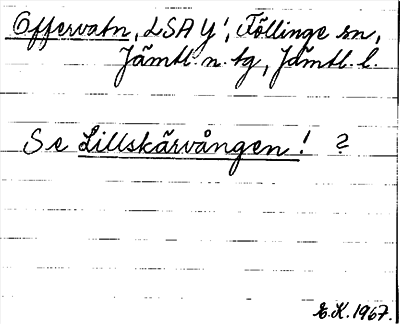 Offervatn, LSA Y', Föllinge sn,
Jämtl. n. tg, Jämtl. l.
Se Lillskärvången! ?
E.K. 1967.